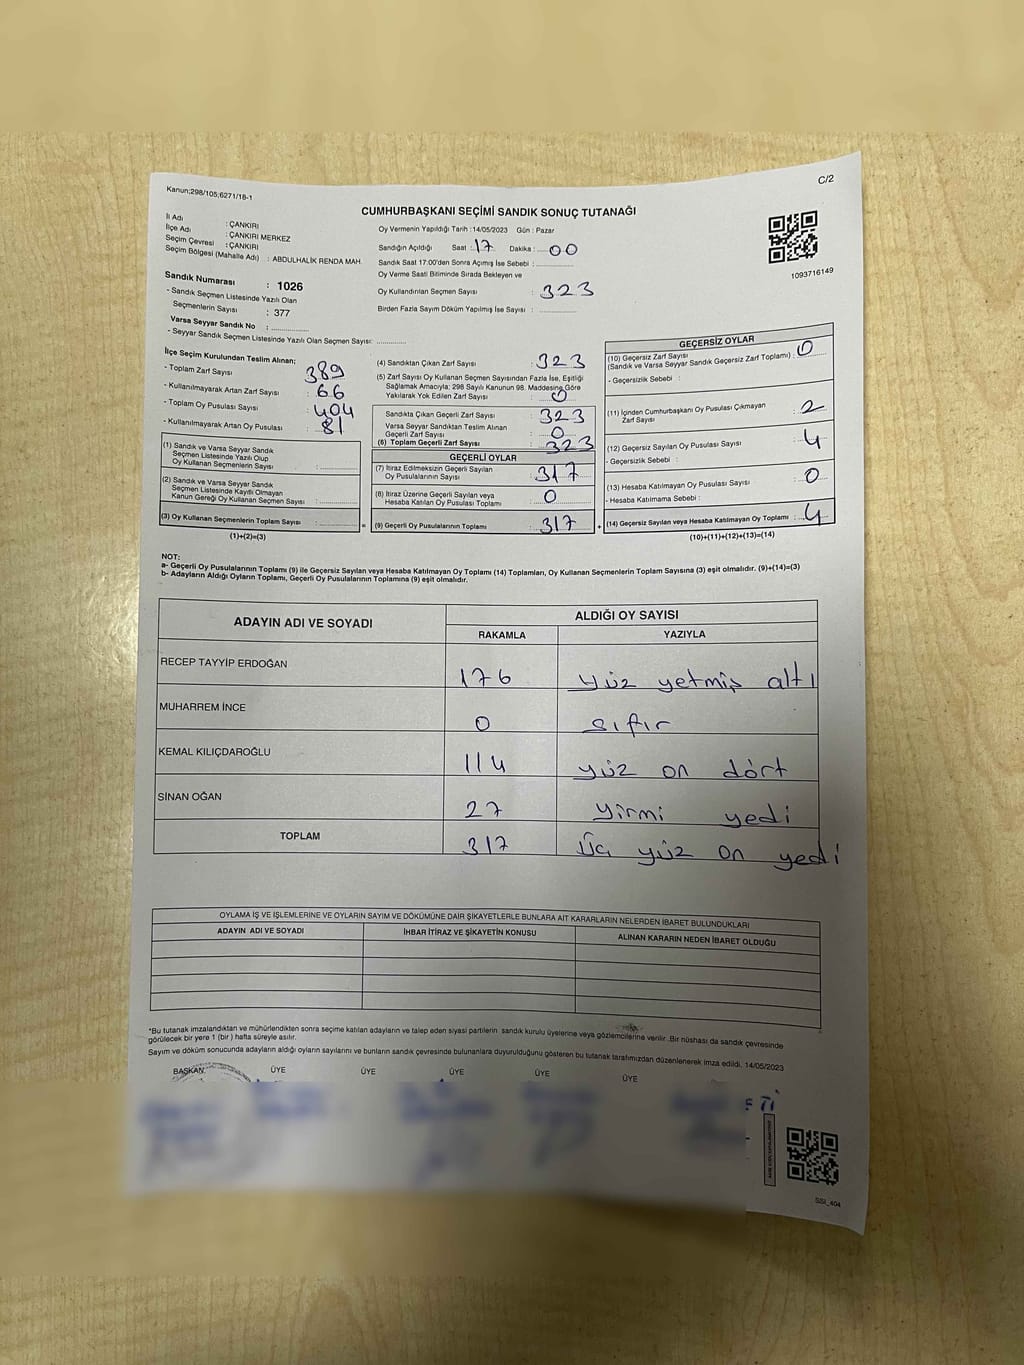 Kanun;298/105;6271/18-1
C/2
CUMHURBAŞKANI SEÇİMİ SANDIK SONUÇ TUTANAĞI
İl Adı : ÇANKIRI
İlçe Adı : ÇANKIRI MERKEZ
Seçim Çevresi : ÇANKIRI
Seçim Bölgesi (Mahalle Adı) : ABDULHALİK RENDA MAH.
Sandık Numarası : 1026
- Sandık Seçmen Listesinde Yazılı Olan
Seçmenlerin Sayısı : 377
Varsa Seyyar Sandık No :
- Seyyar Sandık Seçmen Listesinde Yazılı Olan Seçmen Sayısı:
Oy Vermenin Yapıldığı Tarih :14/05/2023 Gün : Pazar
Sandığın Açıldığı Saat : 17 Dakika : 00
Sandık Saat 17:00'den Sonra Açımış İse Sebebi :
Oy Verme Saati Bitiminde Sırada Bekleyen ve
Oy Kullandırılan Seçmen Sayısı : 323
Birden Fazla Sayım Döküm Yapılmış İse Sayısı :
1093716149
İlçe Seçim Kurulundan Teslim Alınan;
- Toplam Zarf Sayısı : 389
- Kullanılmayarak Artan Zarf Sayısı : 66
- Toplam Oy Pusulası Sayısı : 404
- Kullanılmayarak Artan Oy Pusulası : 81
(1) Sandık ve Varsa Seyyar Sandık
Seçmen Listesinde Yazılı Olup
Oy Kullanan Seçmenlerin Sayısı :
(2) Sandık ve Varsa Seyyar Sandık
Seçmen Listesinde Kayıtlı Olmayan
Kanun Gereği Oy Kullanan Seçmen Sayısı :
(3) Oy Kullanan Seçmenlerin Toplam Sayısı : =
(1)+(2)=(3)
(4) Sandıktan Çıkan Zarf Sayısı : 323
(5) Zarf Sayısı Oy Kullanan Seçmen Sayısından Fazla İse, Eşitliği
Sağlamak Amacıyla; 298 Sayılı Kanunun 98. Maddesine Göre
Yakılarak Yok Edilen Zarf Sayısı : 0
Sandıkta Çıkan Geçerli Zarf Sayısı : 323
Varsa Seyyar Sandıktan Teslim Alınan
Geçerli Zarf Sayısı : 0
(6) Toplam Geçerli Zarf Sayısı : 323
GEÇERLİ OYLAR
(7) İtiraz Edilmeksizin Geçerli Sayılan
Oy Pusulalarının Sayısı : 317
(8) İtiraz Üzerine Geçerli Sayılan veya
Hesaba Katılan Oy Pusulası Toplamı : 0
(9) Geçerli Oy Pusulalarının Toplamı : 317 +
GEÇERSİZ OYLAR
(10) Geçersiz Zarf Sayısı
(Sandık ve Varsa Seyyar Sandık Geçersiz Zarf Toplamı) : 0
- Geçersizlik Sebebi :
(11) İçinden Cumhurbaşkanı Oy Pusulası Çıkmayan
Zarf Sayısı : 2
(12) Geçersiz Sayılan Oy Pusulası Sayısı : 4
- Geçersizlik Sebebi :
(13) Hesaba Katılmayan Oy Pusulası Sayısı : 0
- Hesaba Katılmama Sebebi :
(14) Geçersiz Sayılan veya Hesaba Katılmayan Oy Toplamı : 4
(10)+(11)+(12)+(13)=(14)
NOT:
a- Geçerli Oy Pusulalarının Toplamı (9) ile Geçersiz Sayılan veya Hesaba Katılmayan Oy Toplamı (14) Toplamları, Oy Kullanan Seçmenlerin Toplam Sayısına (3) eşit olmalıdır. (9)+(14)=(3)
b- Adayların Aldığı Oyların Toplamı, Geçerli Oy Pusulalarının Toplamına (9) eşit olmalıdır.
ADAYIN ADI VE SOYADI
ALDIĞI OY SAYISI
RAKAMLA YAZIYLA
RECEP TAYYİP ERDOĞAN 176 yüz yetmiş altı
MUHARREM İNCE 0 sıfır
KEMAL KILIÇDAROĞLU 114 yüz on dört
SİNAN OĞAN 27 yirmi yedi
TOPLAM 317 Üç yüz on yedi
OYLAMA İŞ VE İŞLEMLERİNE VE OYLARIN SAYIM VE DÖKÜMÜNE DAİR ŞİKAYETLERLE BUNLARA AİT KARARLARIN NELERDEN İBARET BULUNDUKLARI
ADAYIN ADI VE SOYADI İHBAR İTİRAZ VE ŞİKAYETİN KONUSU ALINAN KARARIN NEDEN İBARET OLDUĞU
*Bu tutanak imzalandıktan ve mühürlendikten sonra seçime katılan adayların ve talep eden siyasi partilerin sandık kurulu üyelerine veya gözlemcilerine verilir. Bir nüshası da sandık çevresinde
görülecek bir yere 1 (bir) hafta süreyle asılır.
Sayım ve döküm sonucunda adayların aldığı oyların sayılarını ve bunların sandık çevresinde bulunanlara duyurulduğunu gösteren bu tutanak tarafımızdan düzenlenerek imza edildi. 14/05/2023
BAŞKAN ÜYE ÜYE ÜYE ÜYE ÜYE
SSI_404